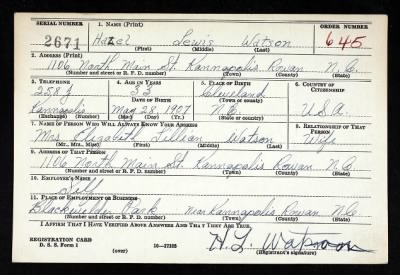 SERIAL NUMBER 1. NAME (Print) ORDER NUMBER
2671 Hazel Lewis Watson 645
(First) (Middle) (Last)
2. ADDRESS (Print)
1106 North Main St. Kannapolis Rowan N.C.
(Number and street or R. F. D. number) (Town) (County) (State)
3. TELEPHONE 4. AGE IN YEARS 5. PLACE OF BIRTH 6. COUNTRY OF CITIZENSHIP
258J 33 Cleveland
DATE OF BIRTH (Town or county)
Kannapolis May 28, 1907 N.C. U.S.A.
(Exchange) (Number) (Mo.) (Day) (Yr.) (State or country)
7. NAME OF PERSON WHO WILL ALWAYS KNOW YOUR ADDRESS 8. RELATIONSHIP OF THAT PERSON
Mrs. Elizabeth Lillian Watson Wife
(Mr., Mrs., Miss) (First) (Middle) (Last)
9. ADDRESS OF THAT PERSON
1106 North Main St. Kannapolis Rowan N.C.
(Number and street or R. F. D. number) (Town) (County) (State)
10. EMPLOYER'S NAME
Self
11. PLACE OF EMPLOYMENT OR BUSINESS
Blackwelder Park near Kannapolis Rowan N.C.
(Number and street or R. F. D. number) (Town) (County) (State)
I AFFIRM THAT I HAVE VERIFIED ABOVE ANSWERS AND THAT THEY ARE TRUE.
REGISTRATION CARD
D. S. S. Form 1 (over) 16—17105 H. L. Watson
(Registrant's signature)